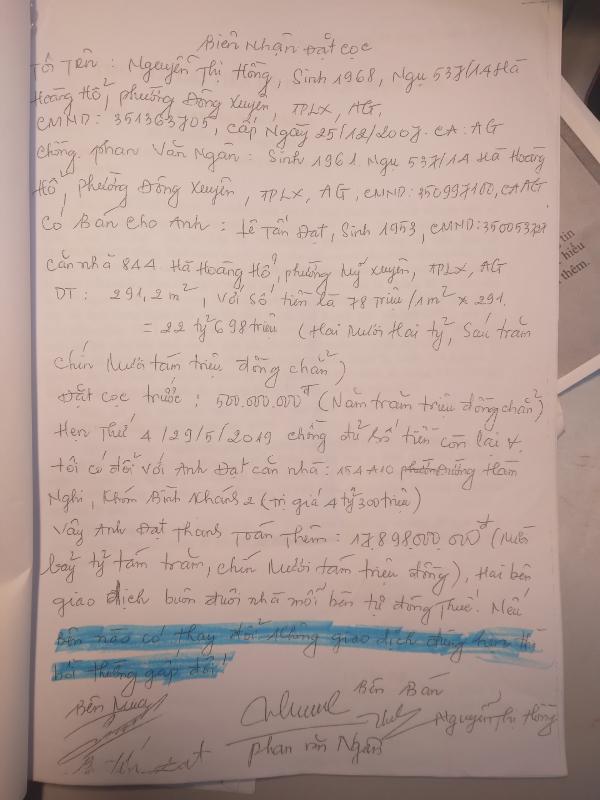 Biên Nhận Đặt Cọc
Tôi Tên : Nguyễn Thị Hồng, Sinh 1968, Ngụ 537/14 Hà
Hoàng Hổ, phường Đông Xuyên, TPLX, AG.
CMND: 351363705, cấp Ngày 25/12/2007. CA: AG
Chồng. phan Văn Ngân : Sinh 1961. Ngụ 537/14 Hà Hoàng
Hổ, phường Đông Xuyên, TPLX, AG, CMND: 350997100, CA AG
Có Bán Cho Anh : Lê Tấn Đạt, Sinh 1953, CMND:
căn nhà 844 Hà Hoàng Hổ, phường Mỹ Xuyên, TPLX, AG
DT : 291,2 m², Với Số Tiền là 78 Triệu /1m² x 291.
= 22 tỷ 698 triệu (Hai Mươi Hai tỷ, Sáu trăm
chín Mươi tám triệu đồng chẵn)
Đặt cọc trước : 500.000.000đ (Năm trăm triệu đồng chẵn)
Hẹn Thứ 4 /29/5/2019 chồng đủ số tiền còn lại
tôi có đổi với Anh Đạt căn nhà : 154A10 Đường Hàm
Nghi, Khóm Bình Khánh 2 (trị giá 4 tỷ 300 triệu)
Vậy Anh Đạt Thanh Toán Thêm : 17.898.000.000đ (Mười
bảy tỷ tám trăm, chín Mươi tám triệu đồng), Hai bên
giao dịch buôn đuôi nhà mỗi bên tự đóng Thuế. Nếu
bên nào có thay đổi không giao dịch đúng hẹn thì
bồi thường gấp đôi
Bên Mua
Bên Bán
Nguyễn Thị Hồng
phan văn Ngân